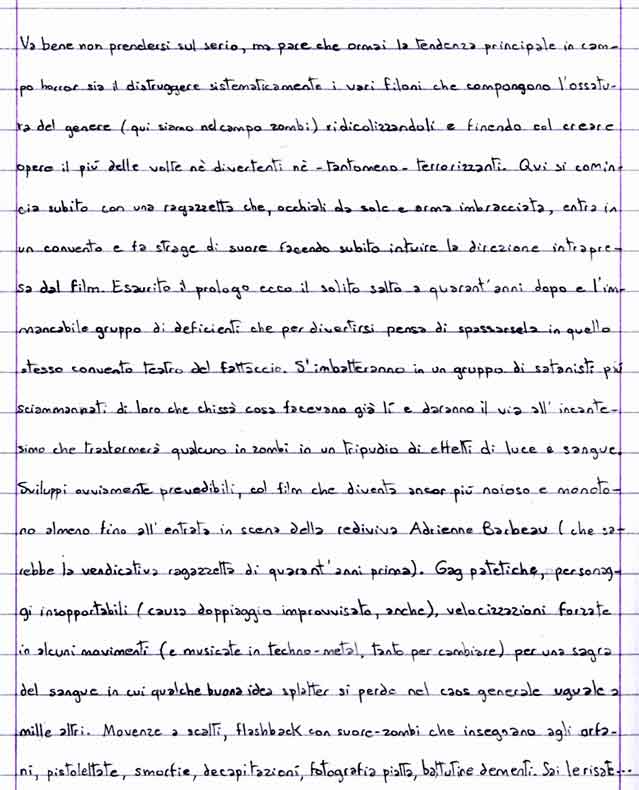 Va bene non prendersi sul serio, ma pare che ormai la tendenza principale in cam-
po horror sia il distruggere sistematicamente i vari filoni che compongono l'ossatu-
ra del genere (qui siamo nel campo zombi) ridicolizzandoli e finendo col creare
opere il più delle volte nè divertenti nè - tantomeno - terrorizzanti. Qui si comin-
cia subito con una ragazzetta che, occhiali da sole e arma imbracciata, entra in
un convento e fa strage di suore facendo subito intuire la direzione intrapre-
sa dal film. Esaurito il prologo ecco il solito salto a quarant'anni dopo e l'im-
mancabile gruppo di deficienti che per divertirsi pensa di spassarsela in quello
stesso convento teatro del fattaccio. S'imbatteranno in un gruppo di satanisti più
sciammannati di loro che chissà cosa facevano già lì e daranno il via all'incante-
simo che trasformerà qualcuno in zombi in un tripudio di effetti di luce e sangue.
Sviluppi ovviamente prevedibili, col film che diventa ancor più noioso e monoto-
no almeno fino all'entrata in scena della rediviva Adrienne Barbeau (che sa-
rebbe la vendicativa ragazzetta di quarant'anni prima). Gag patetiche, personag-
gi insopportabili (causa doppiaggio improvvisato, anche), velocizzazioni forzate
in alcuni movimenti (e musicate in techno-metal, tanto per cambiare) per una sagra
del sangue in cui qualche buona idea splatter si perde nel caos generale uguale a
mille altri. Movenze a scatti, flashback con suore-zombi che insegnano agli orfa-
ni, pistolettate, smorfie, decapitazioni, fotografia piatta, battutine dementi. Sai le risate...